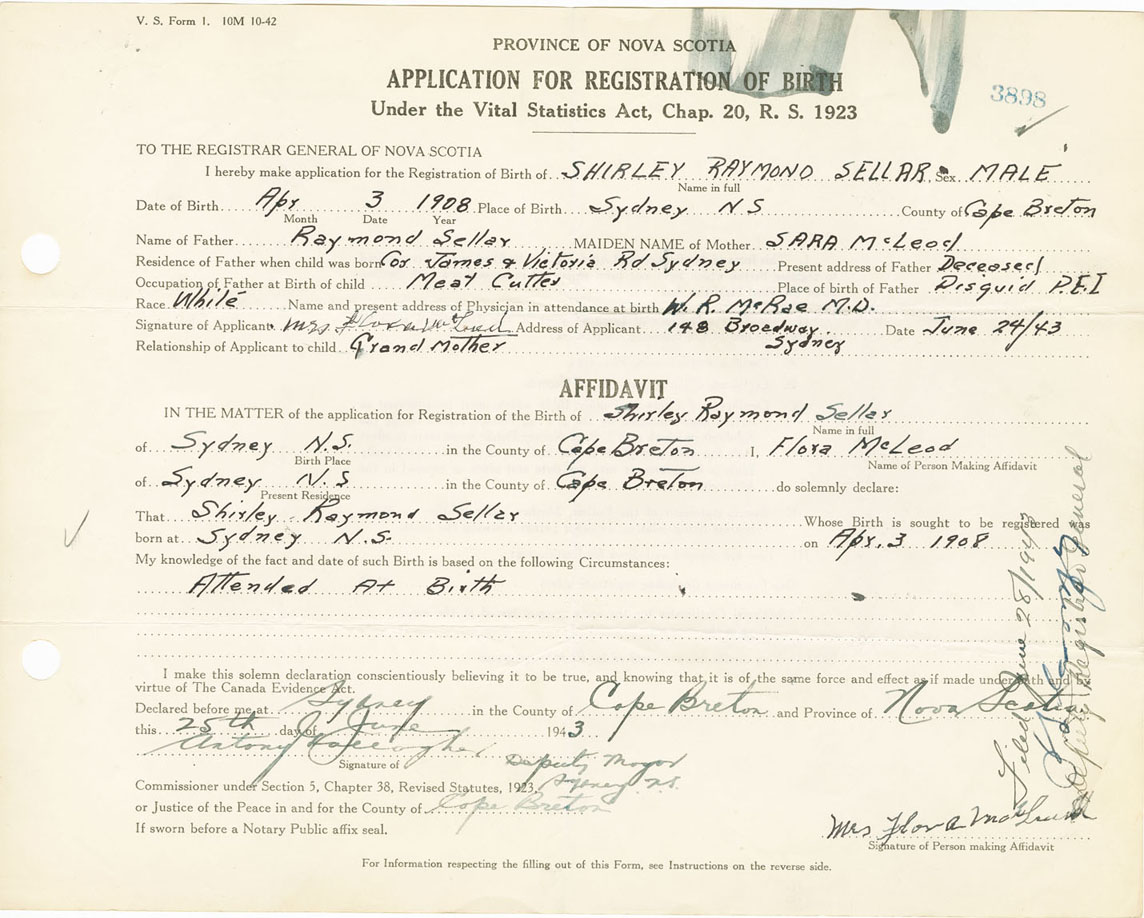 V. S. Form 1. 10M 10-42
PROVINCE OF NOVA SCOTIA
APPLICATION FOR REGISTRATION OF BIRTH
3898
Under the Vital Statistics Act, Chap. 20, R. S. 1923
TO THE REGISTRAR GENERAL OF NOVA SCOTIA
I hereby make application for the Registration of Birth of SHIRLEY RAYMOND SELLAR Sex MALE
Name in full
Date of Birth Apr 3 1908 Place of Birth Sydney N S County of Cape Breton
Month Date Year
Name of Father Raymond Sellar MAIDEN NAME of Mother SARA McLeod
Residence of Father when child was born Cor James & Victoria Rd Sydney Present address of Father Deceased
Occupation of Father at Birth of child Meat Cutter Place of birth of Father Disguid P.E.I
Race White Name and present address of Physician in attendance at birth W. R. McRae M.D.
Signature of Applicant Mrs Flora McLeod Address of Applicant 148 Broadway Date June 24/43
Sydney
Relationship of Applicant to child Grand Mother
AFFIDAVIT
IN THE MATTER of the application for Registration of the Birth of Shirley Raymond Sellar
Name in full
of Sydney N.S. in the County of Cape Breton I, Flora McLeod
Birth Place Name of Person Making Affidavit
of Sydney N. S in the County of Cape Breton do solemnly declare:
Present Residence
That Shirley Raymond Sellar Whose Birth is sought to be registered was
born at Sydney N.S. on Apr, 3 1908
My knowledge of the fact and date of such Birth is based on the following Circumstances:
Attended At Birth
I make this solemn declaration conscientiously believing it to be true, and knowing that it is of the same force and effect as if made under oath and by
virtue of The Canada Evidence Act.
Declared before me at Sydney in the County of Cape Breton and Province of Nova Scotia
this 25th day of June 1943
Antony
Signature of Deputy Mayor
Sydney N.S.
Commissioner under Section 5, Chapter 38, Revised Statutes, 1923,
or Justice of the Peace in and for the County of Cape Breton
If sworn before a Notary Public affix seal.
Mrs Flora McLeod
Signature of Person making Affidavit
For Information respecting the filling out of this Form, see Instructions on the reverse side.
Filed June 28/1943
Deputy Registrar General